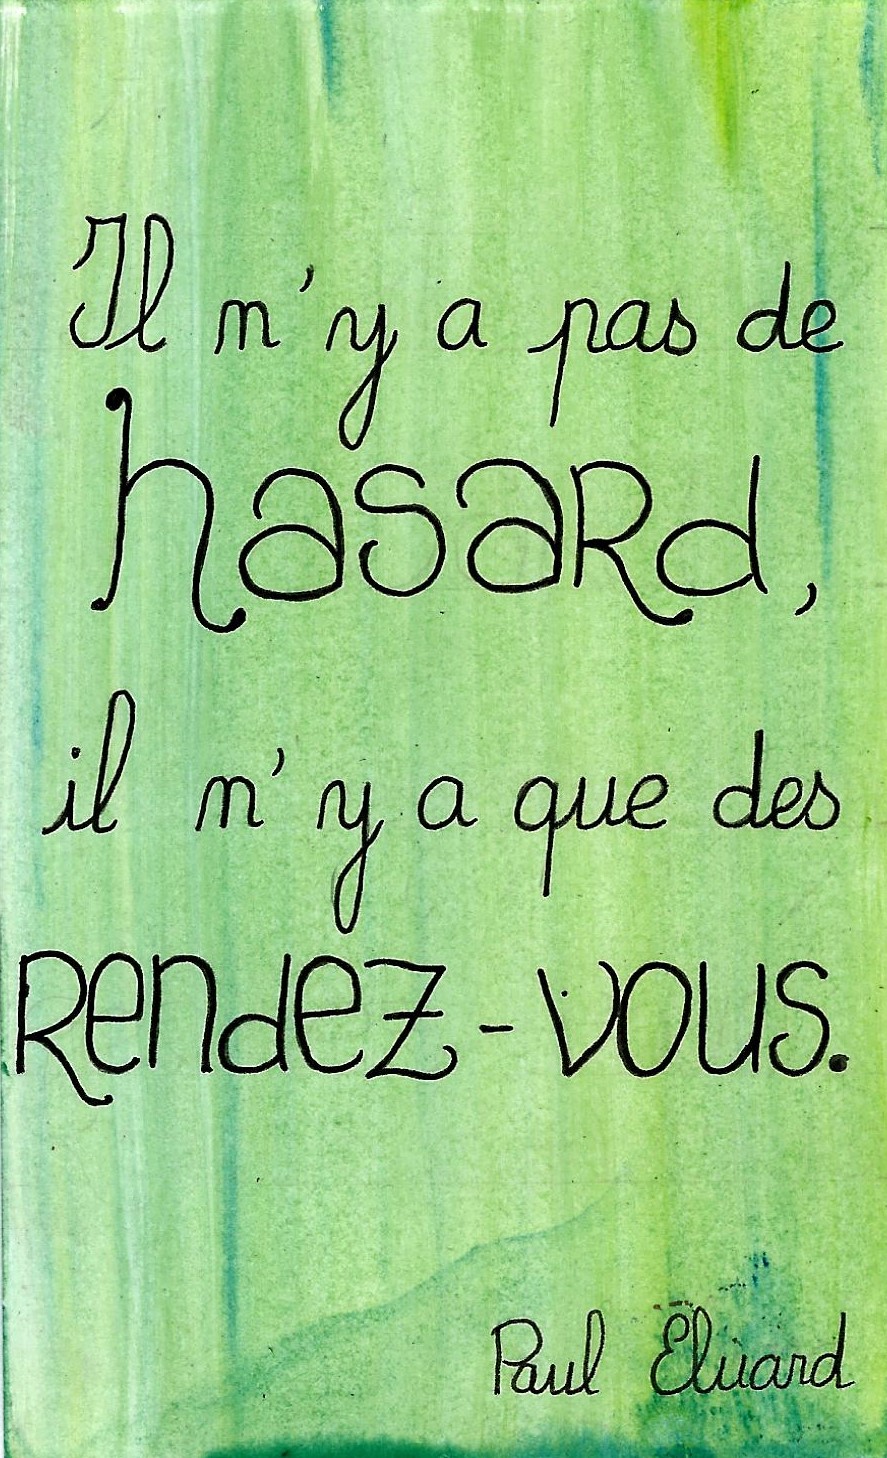 Il n'y a pas de
hasard,
il n'y a que des
rendez-vous.
Paul Éluard